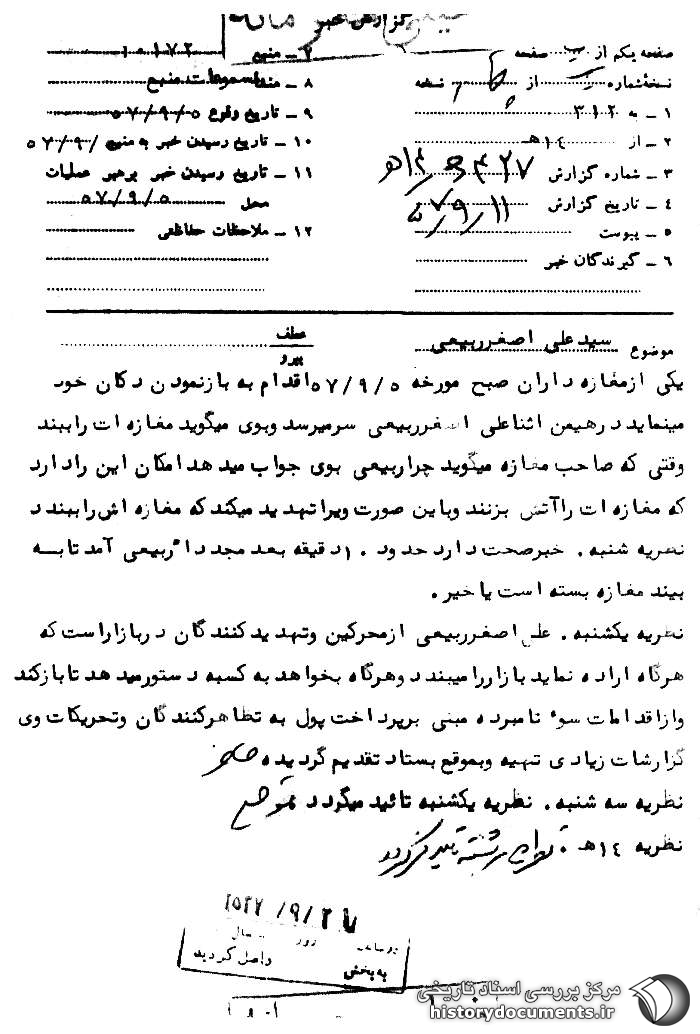 گزارش خبر
صفحه یکم از صفحه
نسخه شماره از نسخه
۱ - به ۳۱۲
۲ - از ۱۴ه
۳ - شماره گزارش
۴ - تاریخ گزارش ۵۷/۹/۱۱
۵ - پیوست
۶ - گیرندگان خبر
۷ - منبع ۱۰۱۷۲
۸ - منشأ مسموعات منبع
۹ - تاریخ وقوع ۵۷/۹/۵
۱۰ - تاریخ رسیدن خبر به منبع ۵۷/۹/
۱۱ - تاریخ رسیدن خبر برهبر عملیات
محل ۵۷/۹/۵
۱۲ - ملاحظات حفاظتی
موضوع سیدعلی اصغرربیعی
عطف
پیرو
یکی ازمغازه داران صبح مورخه ۵۷/۹/۵ اقدام به بازنمودن دکان خود
مینماید درهمین اثناعلی اصغرربیعی سرمیرسد وبوی میگوید مغازه ات راببند
وقتی که صاحب مغازه میگوید چراربیعی بوی جواب میدهد امکان این رادارد
که مغازه ات راآتش بزنند وباین صورت ویراتهدید میکند که مغازه اش راببندد
نظریه شنبه. خبرصحت دارد حدود ۱۰ دقیقه بعد مجدداً ربیعی آمد تا به
بیند مغازه بسته است یا خیر.
نظریه یکشنبه. علی اصغرربیعی ازمحرکین وتهدید کنندگان دربازاراست که
هرگاه اراده نماید بازاررا میبندد وهرگاه بخواهد به کسبه دستورمیدهد تابازکند
وازاقدامات سوء نامبرده مبنی برپرداخت پول به تظاهرکنندگان وتحریکات وی
گزارشات زیادی تهیه وبموقع بستاد تقدیم گردیده
نظریه سه شنبه. نظریه یکشنبه تائید میگردد
نظریه ۱۴ه.
۲۵۳۷/۹/۲۷
روز سال
واصل گردید
به بخش
مرکز بررسی اسناد تاریخی
historydocuments.ir